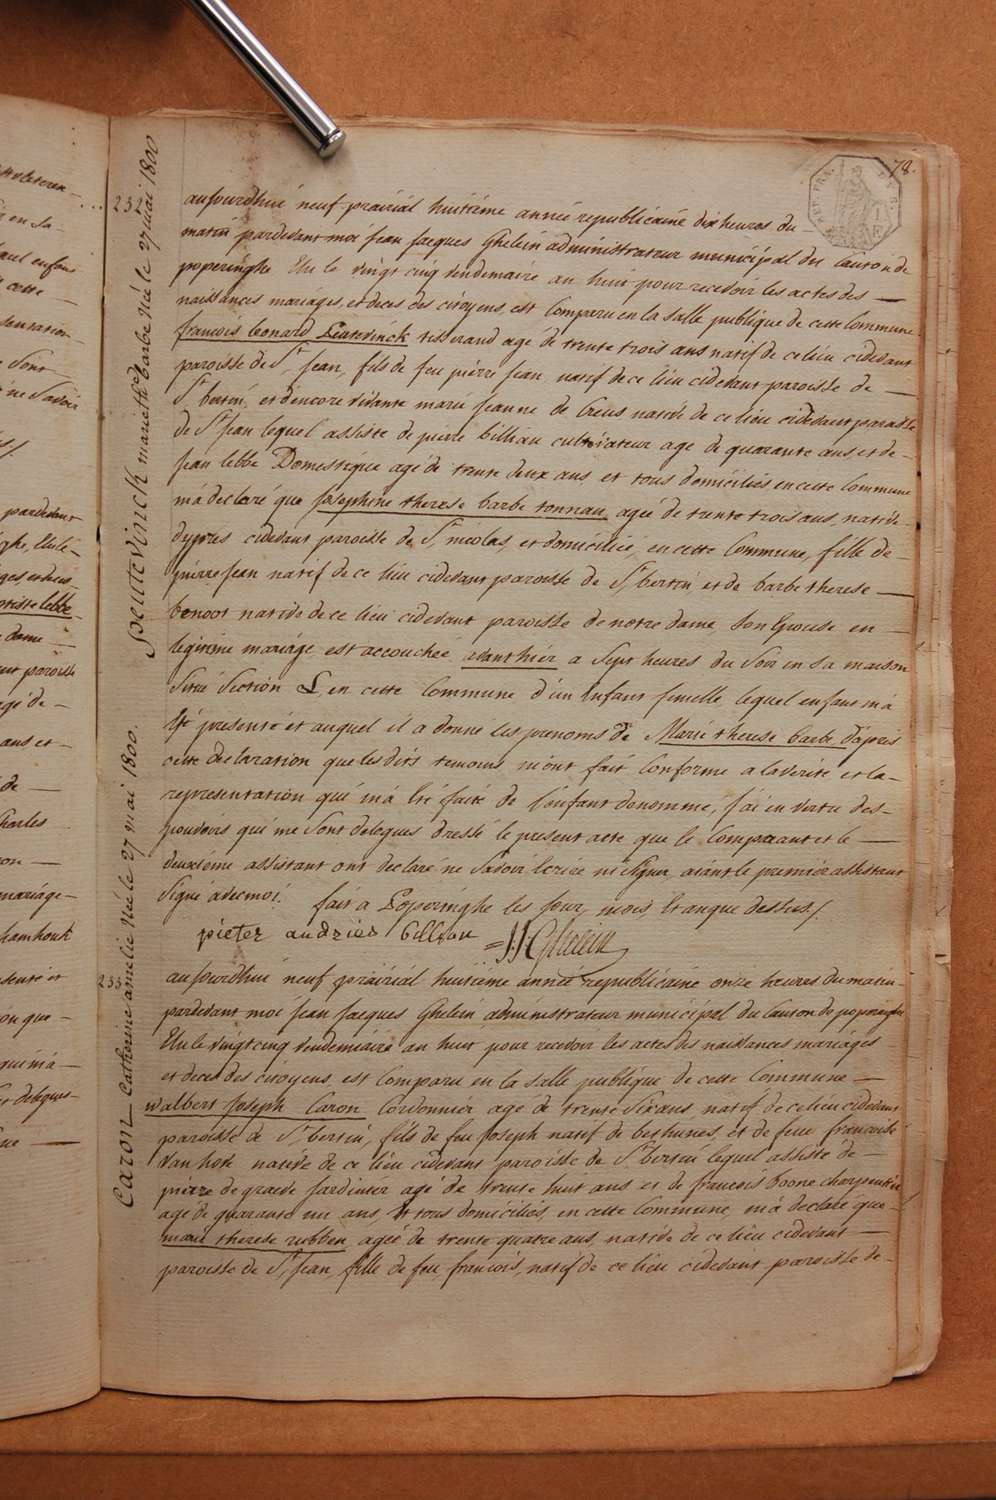 78.
232.
Speutevinck marie th.ce barbe Née le 27 mai 1800
aujourdhui neuf prairial huitiéme année republicaine dix heures du
matin pardevant moi jean jacques Ghelein administrateur municipal du Canton de
poperinghe Elu le vingt cinq vendemaire an huit pour recevoir les actes des
naissances mariages, et deces des citoyens, est Comparu en la salle publique de cette Commune
francois Leonard tisserand agé de trente trois ans natif de ce lieu cidevant
paroisse de St. jean, fils de feu pierre jean natif de ce lieu cidevant paroisse de
St. bertin, et d'encore vivante marie jeanne de Creus native de ce lieu cidevant paroisse
de St. jean lequel assisté de pierre billiau cultivateur agé de quarante ans et de
jean lebbe Domestique agé de trente deux ans et tous domiciliés en cette Commune
m'a declaré que josephine therese barbe tonnau, ageé de trente trois ans, native
dypres cidevant paroisse de St. nicolas, et domiciliée, en cette Commune, fille de
pierre jean natif de ce lieu cidevant paroisse de St. bertin, et de barbe therese
benoot native de ce lieu cidevant paroisse de notre dame, son Epouse en
legitime mariage est accouchée avanthier a Sept heures du Soir en sa maison
Situé Section L. en cette Commune d'un Enfant femelle, lequel enfant m'a
Eté presenté et auquel il a donné les prenoms de Marie therese barbe, d'apres
cette declaration que les dits temoins m'ont fait Conforme a la verité et la
representation qui m'a Eté faite de l'enfant denommé, j'ai en vertu des
pouvoirs qui me Sont delegues dressé le present acte que le Comparant et le
deuxiéme assistant ont declaré ne Savoir Ecrire ni Signer, aiant le premier assistant
Signé avec moi. fait a Poperinghe les jour, mois, Et an que dessus./
pieter andries billiau = JJ Ghelein
233.
Caron Catherine amélie Née le 27 mai 1800.
aujourdhui neuf prairial huitiéme année republicaine onze heures du matin
pardevant moi jean jacques Ghelein administrateur municipal du Canton de poperinghe
Elu le vingt cinq vendemiaire an huit pour recevoir les actes des naissances mariages
et deces des citoyens, est Comparu en la salle publique de cette Commune
walbert joseph Caron Cordonnier agé de trente Six ans natif de ce lieu cidevant
paroisse de St. bertin, fils de feu joseph natif de bethunes, et de feue francoise
van hove native de ce lieu cidevant paroisse de St. bertin lequel assisté de
pierre de graeve jardinier agé de trente huit ans et de francois boone charpentier
agé de quarante un ans, Et tous domiciliés, en cette Commune m'a declaré que
marie therese rubben, ageé de trente quatre ans, native de ce lieu cidevant
paroisse de St. jean, fille de feu francois, natif de ce lieu cidevant paroisse de